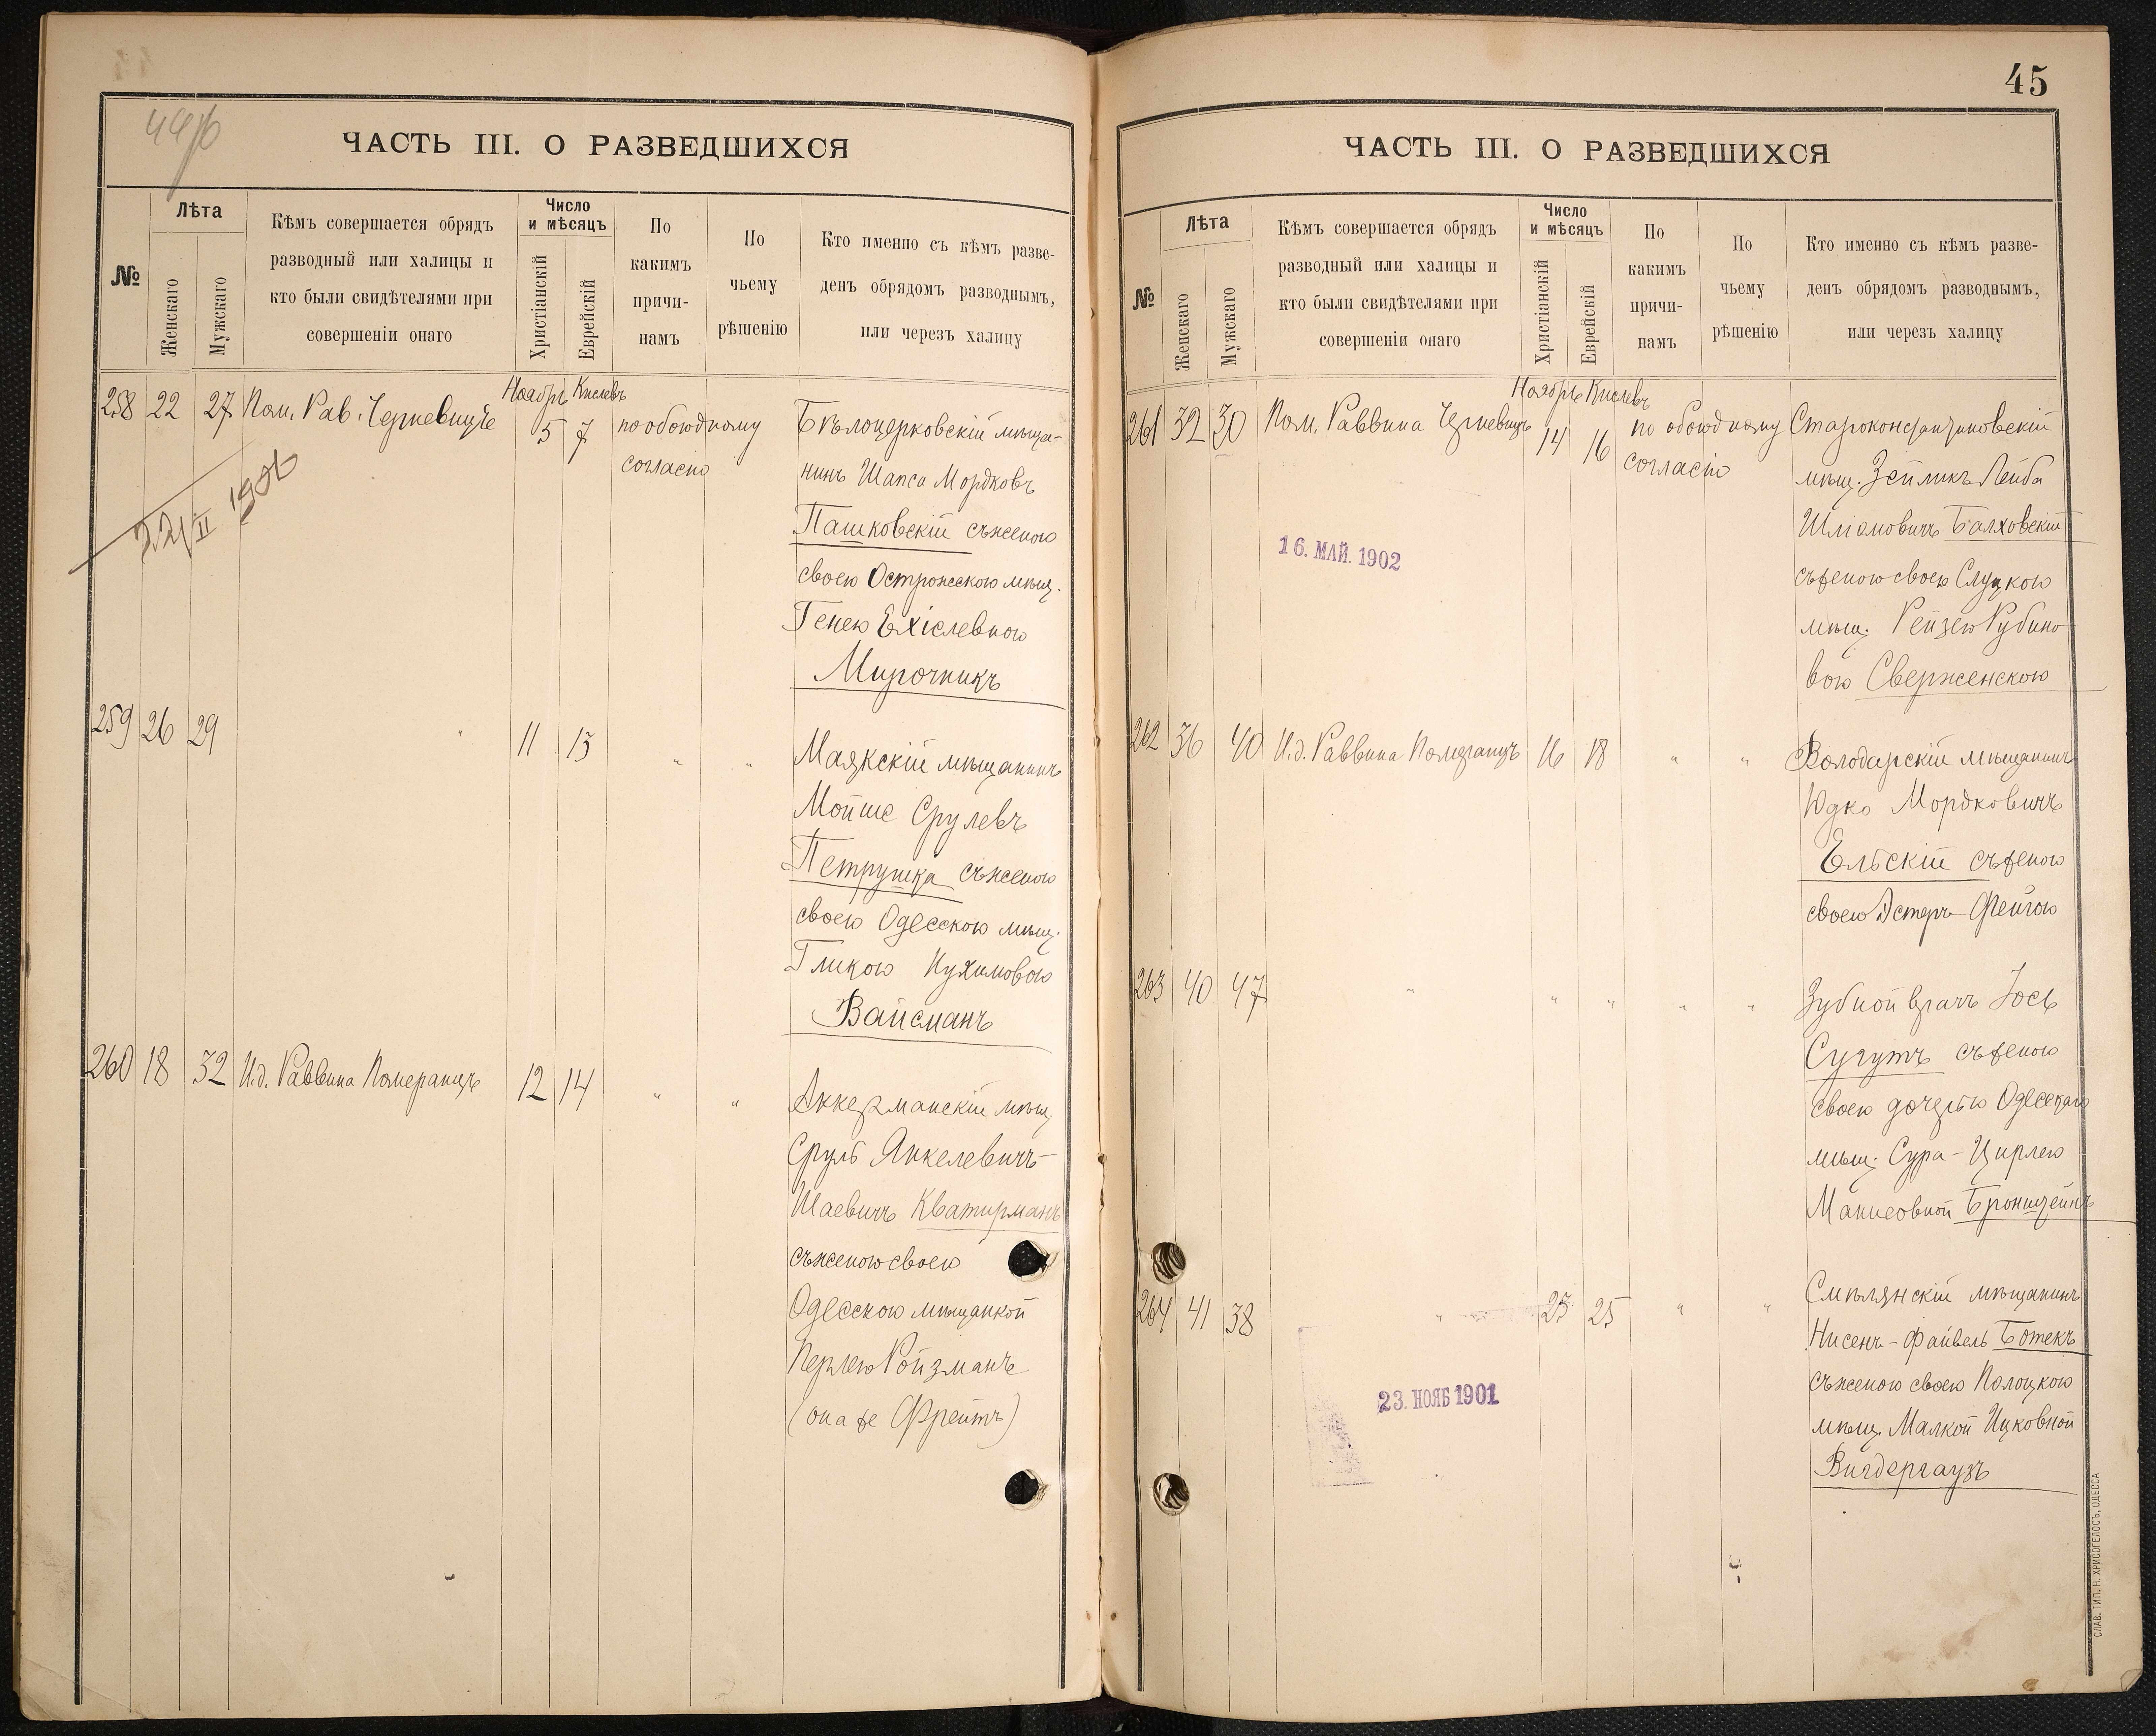 44об
ЧАСТЬ III. О РАЗВЕДШИХСЯ
№
Лѣта
Женскаго
Мужскаго
Кѣмъ совершается обрядъ
разводный или халицы и
кто были свидѣтелями при
совершеніи онаго
Число
и мѣсяцъ
Христіанскій
Еврейскій
По
какимъ
причи-
намъ
По
чьему
рѣшенію
Кто именно съ кѣмъ разве-
денъ обрядомъ разводнымъ,
или черезъ халицу
Ноябрь Кислевъ
258 22 27 Пом. Рав. Черневицъ 5 7 по обоюдному
согласію
Бѣлоцерковскій мѣща-
нинъ Шапса Мордковъ
Пашковскій съ женою
своею Острожскою мѣщ.
Генею Ехіелевною
Мирочникъ
22/II 1906
259 26 29 " 11 13 " "
Маякскій мѣщанинъ
Мойше Срулевъ
Петрушка съ женою
своею Одесскою мѣщ.
Гликою Нухимовою
Вайсманъ
260 18 32 И.д. Раввина Померанцъ 12 14 " "
Аккерманскій мѣщ.
Сруль Янкелевичъ-
Шаевичъ Кватирманъ
съ женою своею
Одесскою мѣщанкой
Перлею Ройзманъ
(она же Фрейтъ)
45
ЧАСТЬ III. О РАЗВЕДШИХСЯ
№
Лѣта
Женскаго
Мужскаго
Кѣмъ совершается обрядъ
разводный или халицы и
кто были свидѣтелями при
совершеніи онаго
Число
и мѣсяцъ
Христіанскій
Еврейскій
По
какимъ
причи-
намъ
По
чьему
рѣшенію
Кто именно съ кѣмъ разве-
денъ обрядомъ разводнымъ,
или черезъ халицу
Ноябрь Кислевъ
261 32 30 Пом. Раввина Черневицъ 14 16 по обоюдному
согласію
Староконстантиновскій
мѣщ. Зейликъ Лейба
Шліомовичъ Балховскій
съ женою своею Слуцкою
мѣщ. Рейзею Рубино-
вою Сверженскою
16. МАЙ. 1902
262 36 40 И.д. Раввина Померанцъ 16 18 " "
Володарскій мѣщанинъ
Юдко Мордковичъ
Ельскій съ женою
своею Эстеръ-Фейгою
263 40 47 " " " " "
Зубной врачъ Іось
Сугутъ съ женою
своею дочерью Одесскаго
мѣщ. Сура-Цирлею
Манисовной Бронштейнъ
264 41 38 " 23 25 " "
Смѣлянскій мѣщанинъ
Нисенъ-Файвель Ботекъ
съ женою своею Полоцкою
мѣщ. Малкой Ицковной
Вигдергаузъ
23. НОЯБ 1901
СЛАВ. ТИП. Н. ХРИСОГЕЛОСЪ, ОДЕССА